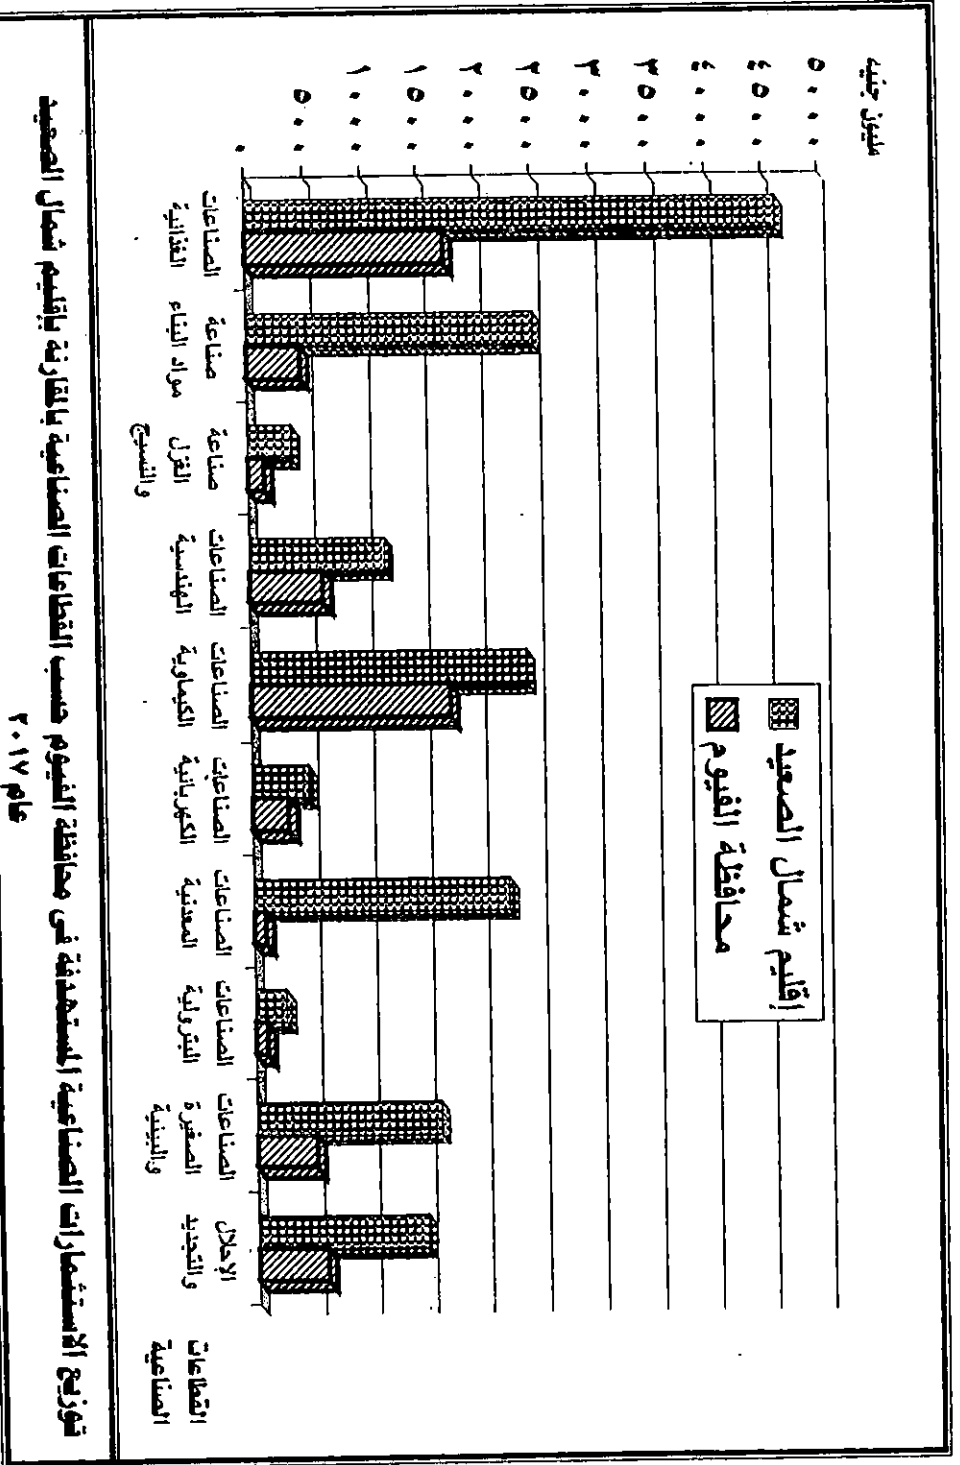 مليون جنيه
٥٠٠٠
٤٥٠٠
٤٠٠٠
٣٥٠٠
٣٠٠٠
٢٥٠٠
٢٠٠٠
١٥٠٠
١٠٠٠
٥٠٠
٠
إقليم شمال الصعيد
محافظة الفيوم
الصناعات
الغذائية
صناعة
مواد البناء
صناعة
الغزل
والنسيج
الصناعات
الهندسية
الصناعات
الكيماوية
الصناعات
الكهربائية
الصناعات
المعدنية
الصناعات
البترولية
الصناعات
الصغيرة
والبيئية
الإحلال
والتجديد
القطاعات
الصناعية
توزيع الاستثمارات الصناعية المستهدفة فى محافظة الفيوم حسب القطاعات الصناعية بالمقارنة بإقليم شمال الصعيد
عام ٢٠١٧